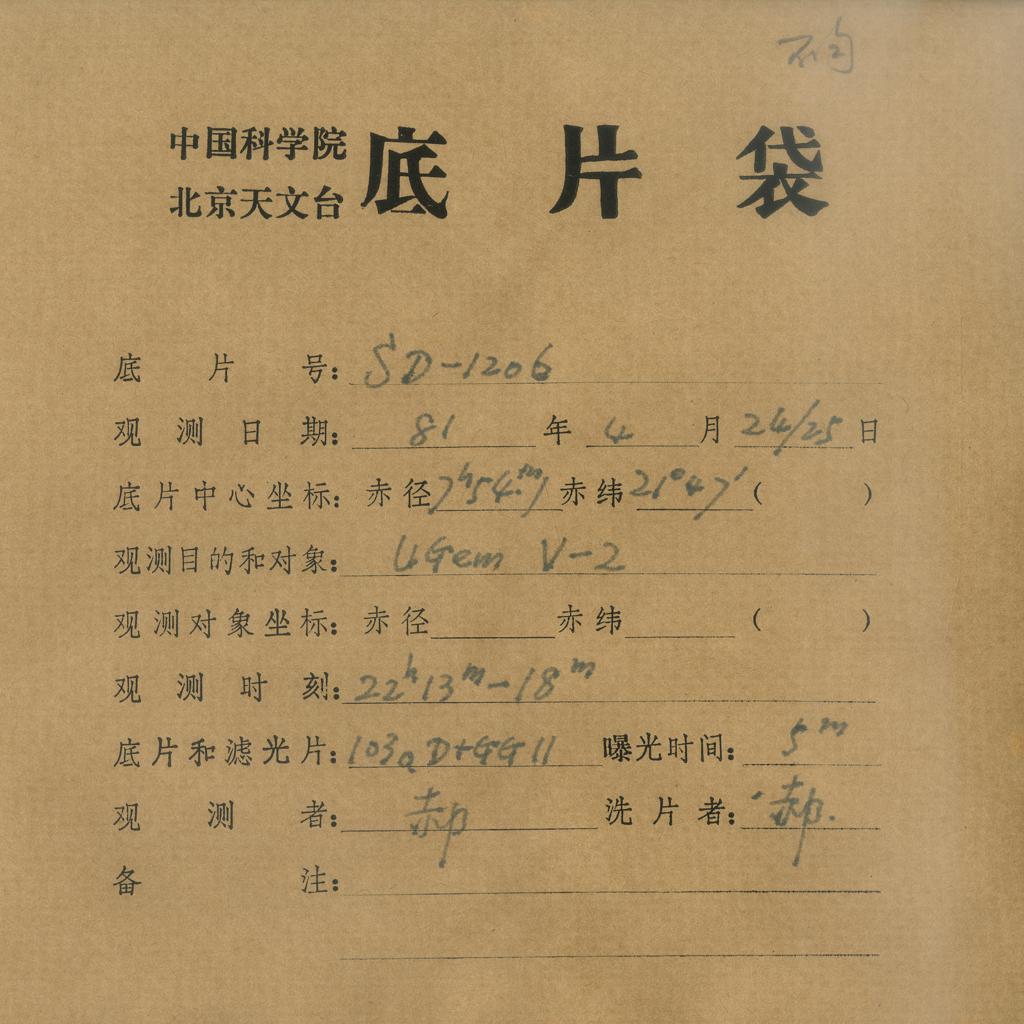 中国科学院
北京天文台 底片袋
底片号：SD-1206
观测日期：81年4月24/25日
底片中心坐标：赤径7ʰ54.ᵐ1赤纬21°47′( )
观测目的和对象：UGem V-2
观测对象坐标：赤径 赤纬 ( )
观测时刻：22ʰ13ᵐ-18ᵐ
底片和滤光片：103aD+GG11 曝光时间：5ᵐ
观测者：郝 洗片者：郝.
备注：